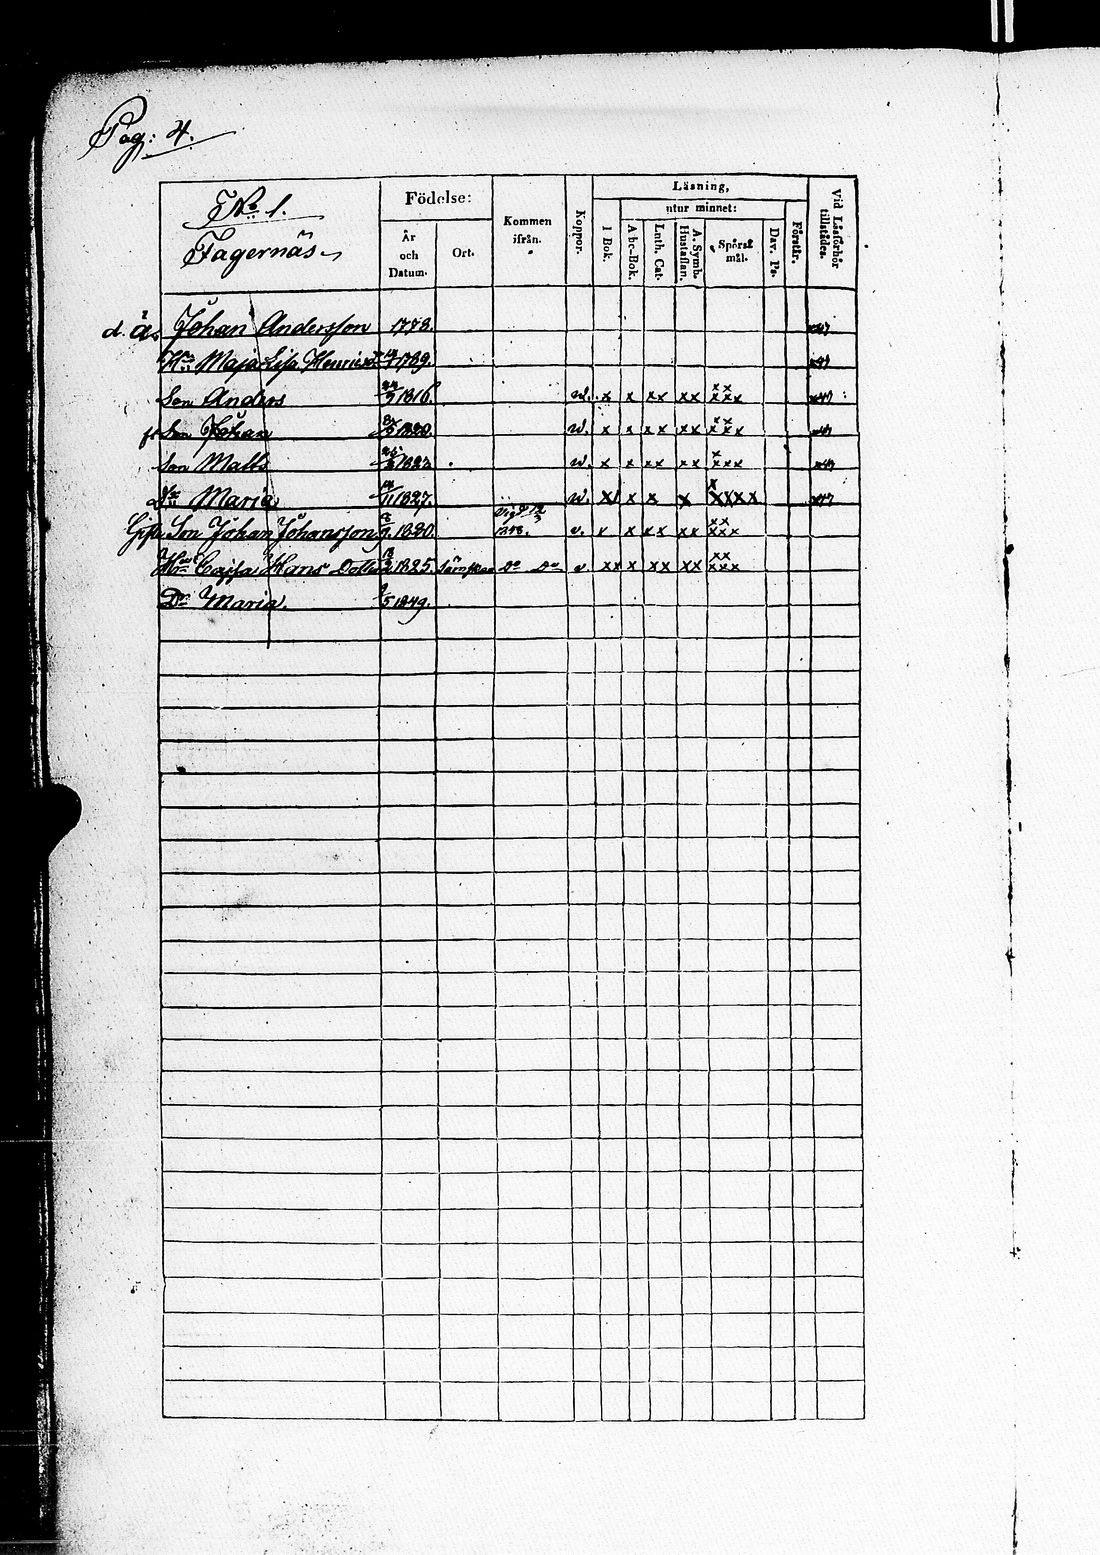 Pag: 4.
No 1.
Fagernäs
Födelse:
År och Datum.
Ort.
Kommen ifrån.
Koppor.
Läsning,
utur minnet:
I Bok.
Abc-Bok.
Luth. Cat.
A. Symb. Hustaflan.
Spörsmål.
Dav. Ps.
Förstår.
Vid Läsförhör tillstädes.
d. Åb. Johan Andersson 1778.
Hu Maja Lisa 1789.
Son Anders 1816 v. x x xx xx xx xxx
Son Johan 1820. v. x x xx xx xx xxx
Son Matts v. x x xx xx x xxx
Dr Maria 1827. v. x x x x xxxx
Gift Son Johan Johansson 1820. Vigd 1848. v. x x xx xx xx xxx
Hu Cajsa Hans Dotter 1825. Do Do v xx x xx xx xx xxx
Dr Maria. 1849.